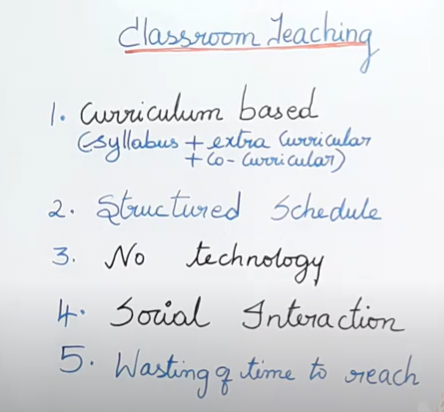 Classroom Teaching
1. Curriculum based
(Syllabus + extra Curricular
+ Co-Curricular)
2. Structured Schedule
3. No technology
4. Social Interaction
5. Wasting of time to reach